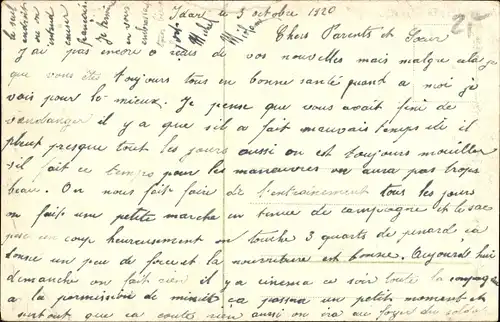 Idar le 3 octobre 1920
Chers Parents et Sœur
J'ai pas encore reçus de vos nouvelles mais malgre cela je
que vous êtes toujours tous en bonne santé quant a moi je
vais pour le mieux. Je pense que vous avait fini de
vendanger il y a que s'il a fait mauvais temps ici il
pleut presque tout les jours aussi on est toujours mouiller
s'il fait ce temps pour les manœuvres on aura pas trops
beau. On nous fait faire de l'entrainement tous les jours
on fait une petite marche en tenue de campagne et le sac
un coup heureusement on touche 3 quarts de pinard ca
donne un peu de force et la nourriture est bonne. Aujourd'hui
dimanche on fait rien il y a cinema ce soir toute la compagnie
a la permission de minuit ca passera un petit moment et
surtout que ca coute rien aussi on ira au foyer du soldat